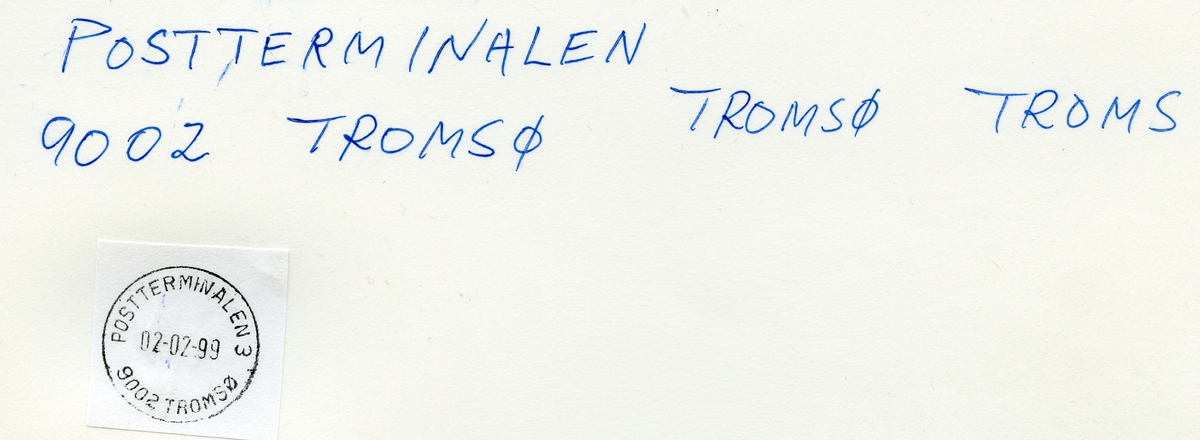 POSTTERMINALEN
9002 TROMSØ TROMSØ TROMS
POSTTERMINALEN 3
02-02-99
9002 TROMSØ